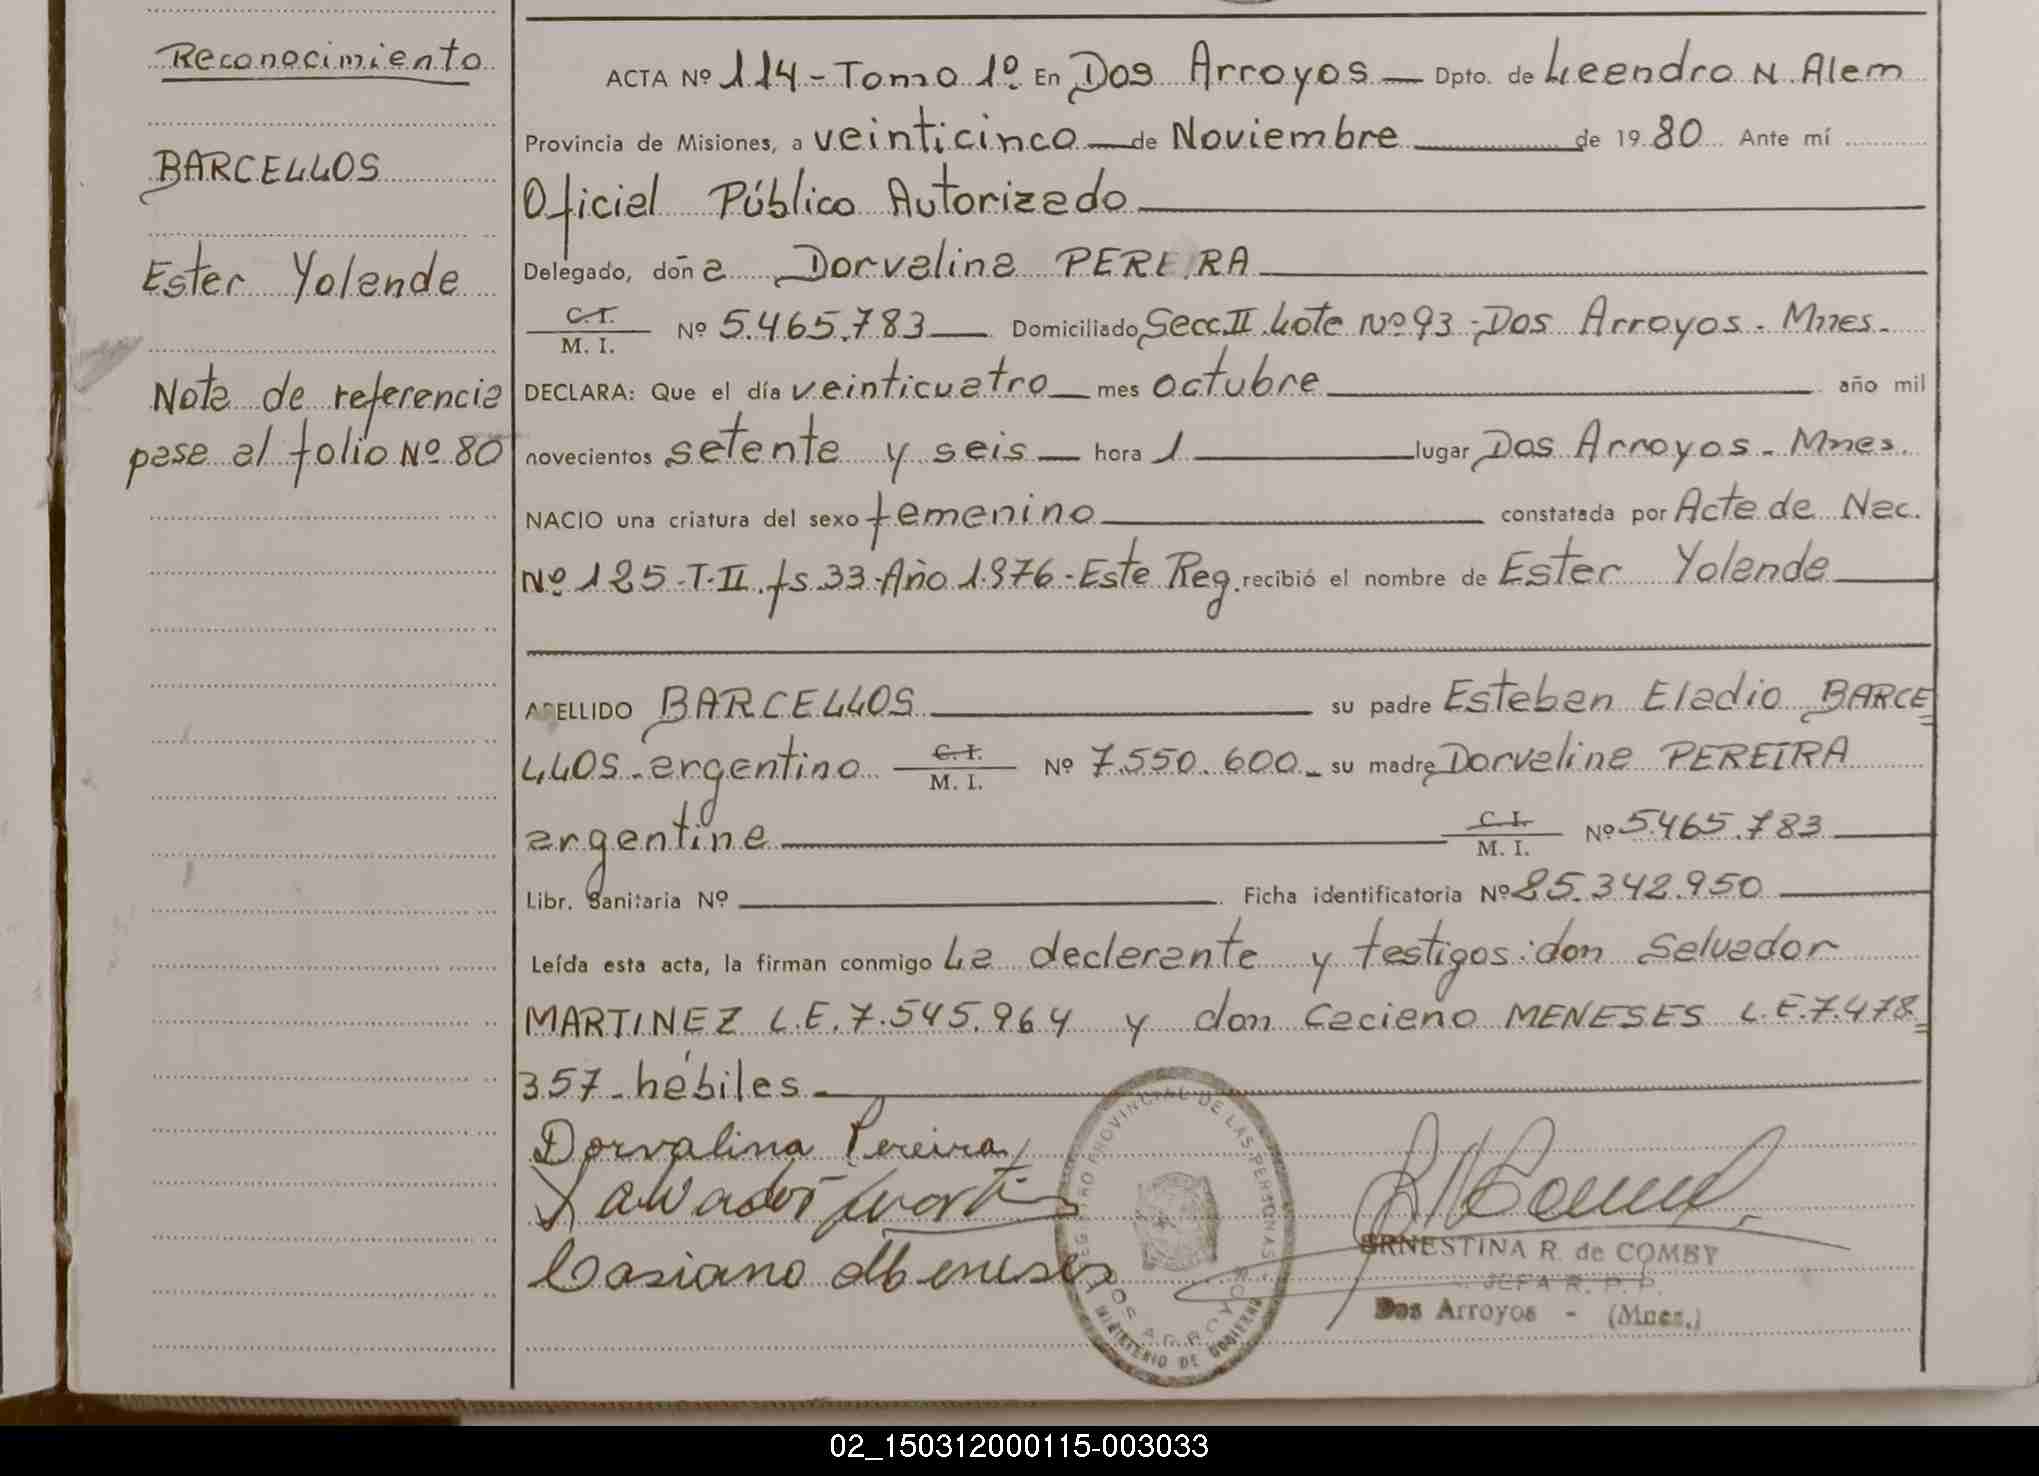 Reconocimiento
BARCELLOS
Ester Yolanda
Nota de referencia
pasa al folio Nº 80
ACTA Nº 114 - Tomo 1º En Dos Arroyos — Dpto. de Leandro N. Alem
Provincia de Misiones, a veinticinco — de Noviembre de 1980 Ante mí
Oficial Público Autorizado
Delegado, doña Dorvalina PEREIRA
C.I. / M. I. Nº 5.465.783 — Domiciliado Secc. II Lote Nº 93 - Dos Arroyos - Mnes.
DECLARA: Que el día veinticuatro — mes octubre año mil
novecientos setenta y seis — hora 1 lugar Dos Arroyos - Mnes.
NACIO una criatura del sexo femenino constatada por Acta de Nac.
Nº 125 - T. II. fs 33 - Año 1.976 - Este Reg. recibió el nombre de Ester Yolanda
APELLIDO BARCELLOS su padre Esteban Eladio BARCE=
LLOS - argentino C.I. / M. I. Nº 7.550.600 - su madre Dorvalina PEREIRA
argentina C.I. / M. I. Nº 5.465.783
Libr. Sanitaria Nº Ficha identificatoria Nº 25.342.950
Leída esta acta, la firman conmigo La declarante y testigos: don Salvador
MARTINEZ L.E. 7.545.964 y don Caciano MENESES L.E. 7.478=
357 - hábiles
Dorvalina Pereira
Salvador Marti
Casiano Meneses
REGISTRO PROVINCIAL DE LAS PERSONAS
DOS ARROYOS
MINISTERIO DE GOBIERNO
ERNESTINA R. de COMBY
JEFA R. P. P.
Dos Arroyos - (Mnes.)
02_150312000115-003033